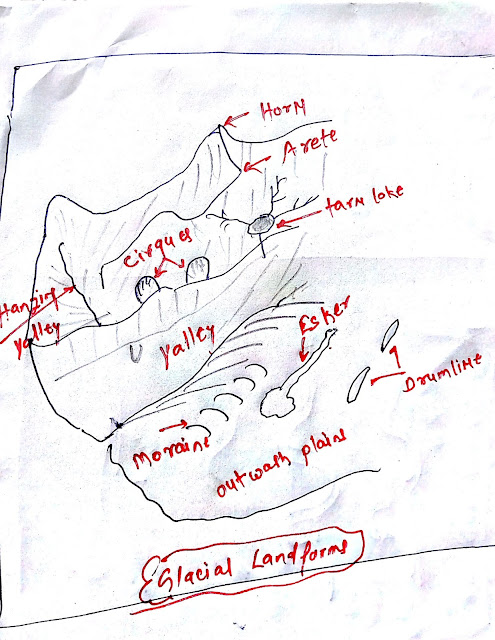 Horn
Arete
tarn lake
Cirques
Hanging
valley
U valley
Esker
Drumline
Moraine
outwash plains
Glacial Landforms